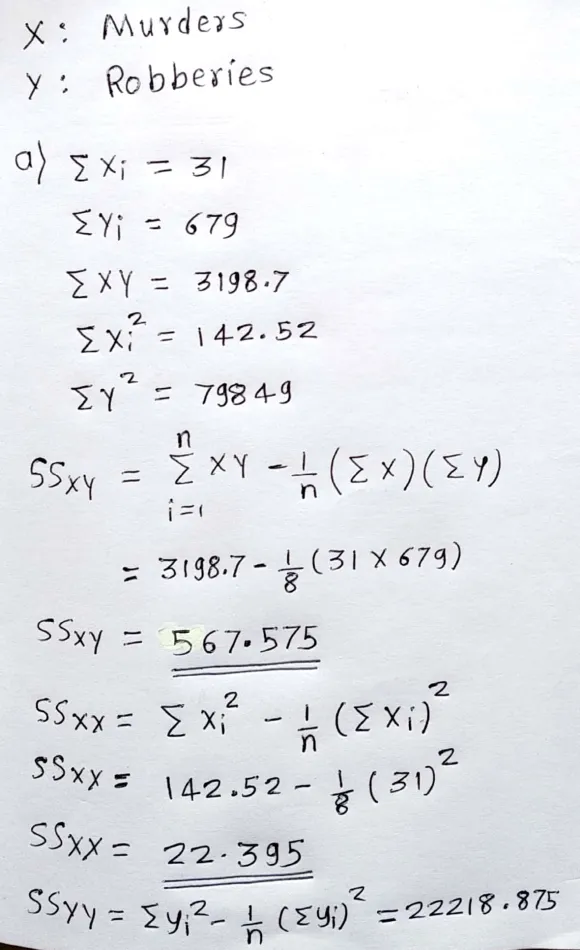 X : Murders
Y : Robberies
a) Σ Xi = 31
ΣYi = 679
Σ XY = 3198.7
Σ Xi² = 142.52
ΣY² = 79849
SSxy = Σ(i=1 to n) XY - 1/n (Σ X)(Σ Y)
= 3198.7 - 1/8 (31 X 679)
SSxy = 567.575
SSxx = Σ Xi² - 1/n (Σ Xi)²
SSxx = 142.52 - 1/8 (31)²
SSxx = 22.395
SSyy = Σyi² - 1/n (Σyi)² = 22218.875